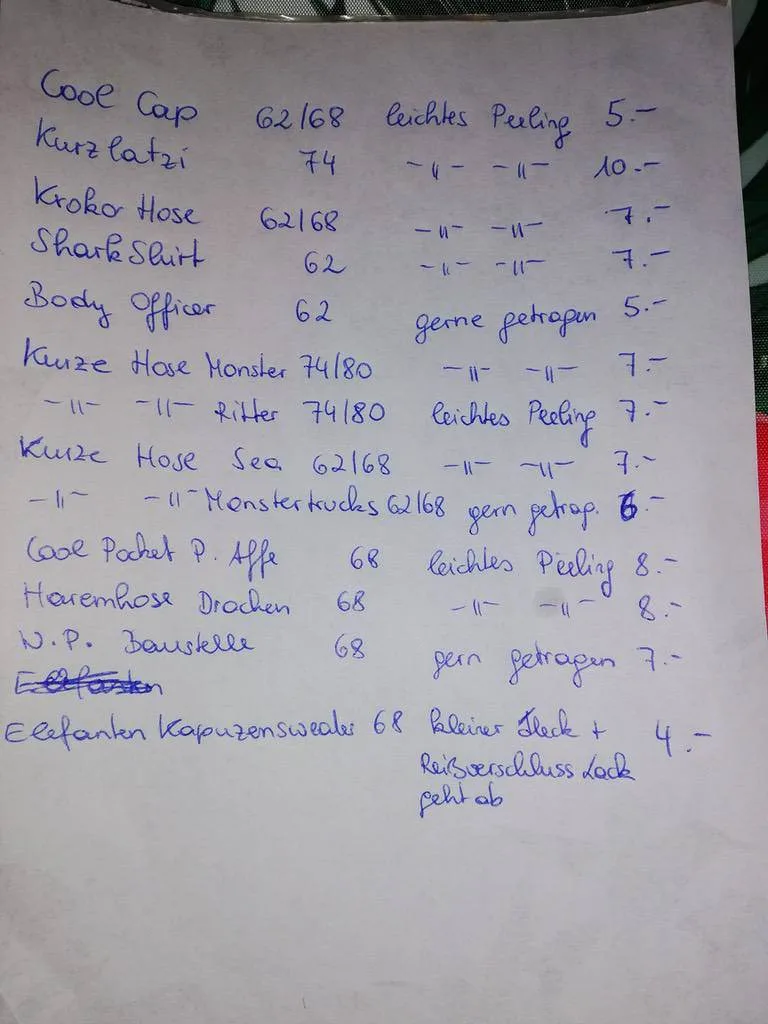 Cool Cap 62/68 leichtes Peeling 5.-
Kurzlatzi 74 -"- -"- 10.-
Kroko Hose 62/68 -"- -"- 7.-
Shark Shirt 62 -"- -"- 7.-
Body Officer 62 gerne getragen 5.-
Kurze Hose Monster 74/80 -"- -"- 7.-
-"- -"- Ritter 74/80 leichtes Peeling 7.-
Kurze Hose Sea 62/68 -"- -"- 7.-
-"- -"- Monstertrucks 62/68 gern getrag. 6.-
Cool Pocket P. Affe 68 leichtes Peeling 8.-
Haremhose Drachen 68 -"- -"- 8.-
W.P. Baustelle 68 gern getragen 7.-
Elefanten
Elefanten Kapuzensweater 68 kleiner Fleck + 4.-
Reißverschluss Lack
geht ab